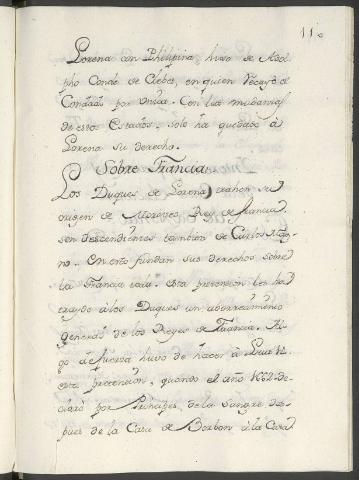 11.
Lorena con Phelipina, huvo de Adol
pho Conde de Cleber, en quien recayó el
Condado por Unica. Con las mudanzas
de estos Estados, solo ha quedado à
Lorena su derecho.
Sobre Francia.
Los Duques de Lorena trahen su
origen de Meroveo Rey de Francia.
son descendientes tambien de Carlos Mag-
no. En esto fundan sus derechos sobre
la Francia toda. Esta pretension les ha
traydo à los Duques un aborrecimiento
general de los Reyes de Francia. Al-
go de fuerza huvo de hacer à Luis
esta pretension, quando el año 1662 de-
claró por Principes de la Sangre des-
pues de la Casa de Borbon à la Casa